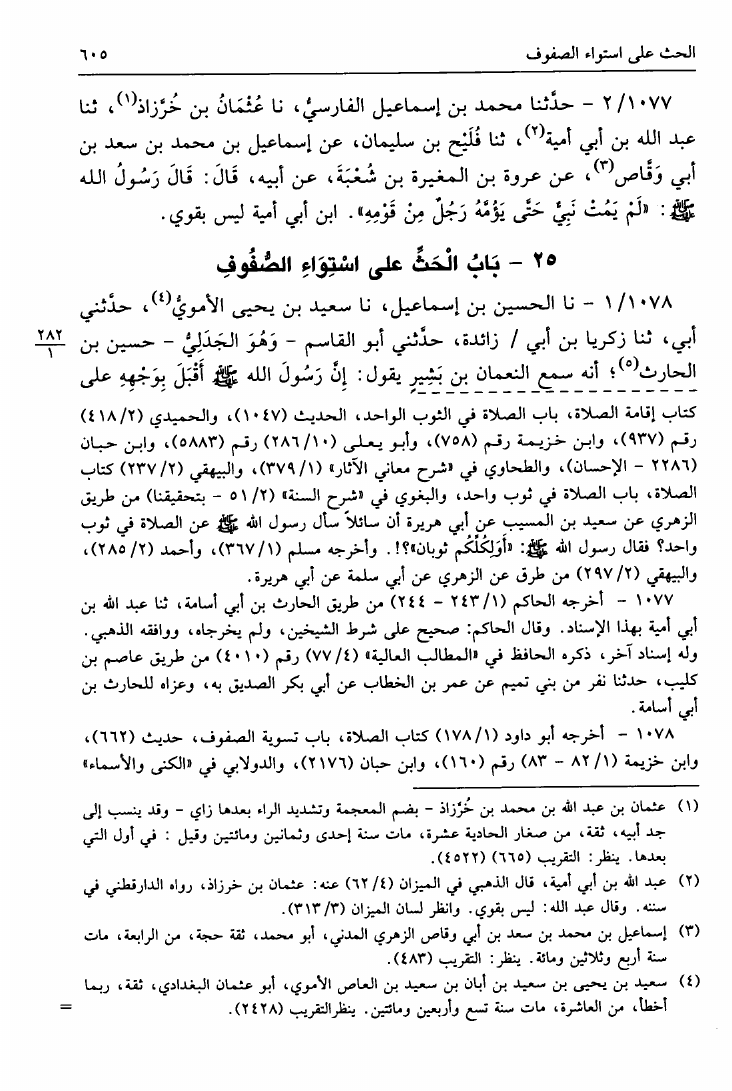 الحث على استواء الصفوف ٦٠٥
٢/١٠٧٧ - حدَّثنا محمد بن إسماعيل الفارسيُّ، نا عُثْمَانُ بن خُرَّزاذ(١)، ثنا
عبد الله بن أبي أمية(٢)، ثنا فُلَيْح بن سليمان، عن إسماعيل بن محمد بن سعد بن
أبي وَقَّاص(٣)، عن عروة بن المغيرة بن شُعْبَةَ، عن أبيه، قَالَ: قَالَ رَسُولُ الله
ﷺ: «لَمْ يَمُتْ نَبِيٌّ حَتَّى يَؤُمَّهُ رَجُلٌ مِنْ قَوْمِهِ». ابن أبي أمية ليس بقوي.
٢٥ - بَابُ الْحَثِّ على اسْتِوَاءِ الصُّفُوفِ
١/١٠٧٨ - نا الحسين بن إسماعيل، نا سعيد بن يحيى الأمويُّ(٤)، حدَّثني
أبي، ثنا زكريا بن أبي / زائدة، حدَّثني أبو القاسم - وَهُوَ الجَدَلِيُّ - حسين بن
٢٨٢
١
الحارث(٥)؛ أنه سمع النعمان بن بَشِيرٍ يقول: إِنَّ رَسُولَ الله ﷺ أَقْبَلَ بِوَجْهِهِ على
كتاب إقامة الصلاة، باب الصلاة في الثوب الواحد، الحديث (١٠٤٧)، والحميدي (٤١٨/٢)
رقم (٩٣٧)، وابن خزيمة رقم (٧٥٨)، وأبو يعلى (٢٨٦/١٠) رقم (٥٨٨٣)، وابن حبان
(٢٢٨٦ - الإحسان)، والطحاوي في «شرح معاني الآثار» (٣٧٩/١)، والبيهقي (٢٣٧/٢) كتاب
الصلاة، باب الصلاة في ثوب واحد، والبغوي في «شرح السنة» (٥١/٢ - بتحقيقنا) من طريق
الزهري عن سعيد بن المسيب عن أبي هريرة أن سائلاً سأل رسول الله ﷺ عن الصلاة في ثوب
واحد؟ فقال رسول الله ﷺ: «أَوَلِكُلِّكُم ثوبان»؟!. وأخرجه مسلم (٣٦٧/١)، وأحمد (٢٨٥/٢)،
والبيهقي (٢٩٧/٢) من طرق عن الزهري عن أبي سلمة عن أبي هريرة.
١٠٧٧ - أخرجه الحاكم (٢٤٣/١ - ٢٤٤) من طريق الحارث بن أبي أسامة، ثنا عبد الله بن
أبي أمية بهذا الإسناد. وقال الحاكم: صحيح على شرط الشيخين، ولم يخرجاه، ووافقه الذهبي.
وله إسناد آخر، ذكره الحافظ في «المطالب العالية» (٧٧/٤) رقم (٤٠١٠) من طريق عاصم بن
كليب، حدثنا نفر من بني تميم عن عمر بن الخطاب عن أبي بكر الصديق به، وعزاه للحارث بن
أبي أسامة.
١٠٧٨ - أخرجه أبو داود (١٧٨/١) كتاب الصلاة، باب تسوية الصفوف، حديث (٦٦٢)،
وابن خزيمة (٨٢/١ - ٨٣) رقم (١٦٠)، وابن حبان (٢١٧٦)، والدولابي في «الكنى والأسماء»
(١) عثمان بن عبد الله بن محمد بن خُرَّزاذ - بضم المعجمة وتشديد الراء بعدها زاي - وقد ينسب إلى
جد أبيه، ثقة، من صغار الحادية عشرة، مات سنة إحدى وثمانين ومائتين وقيل : في أول التي
بعدها. ينظر: التقريب (٦٦٥) (٤٥٢٢).
(٢) عبد الله بن أبي أمية، قال الذهبي في الميزان (٦٢/٤) عنه: عثمان بن خرزاذ، رواه الدارقطني في
سننه. وقال عبد الله: ليس بقوي. وانظر لسان الميزان (٣١٣/٣).
(٣) إسماعيل بن محمد بن سعد بن أبي وقاص الزهري المدني، أبو محمد، ثقة حجة، من الرابعة، مات
سنة أربع وثلاثين ومائة. ينظر: التقريب (٤٨٣).
(٤) سعيد بن يحيى بن سعيد بن أبان بن سعيد بن العاص الأموي، أبو عثمان البغدادي، ثقة، ربما
أخطأ، من العاشرة، مات سنة تسع وأربعين ومائتين. ينظرالتقريب (٢٤٢٨). =